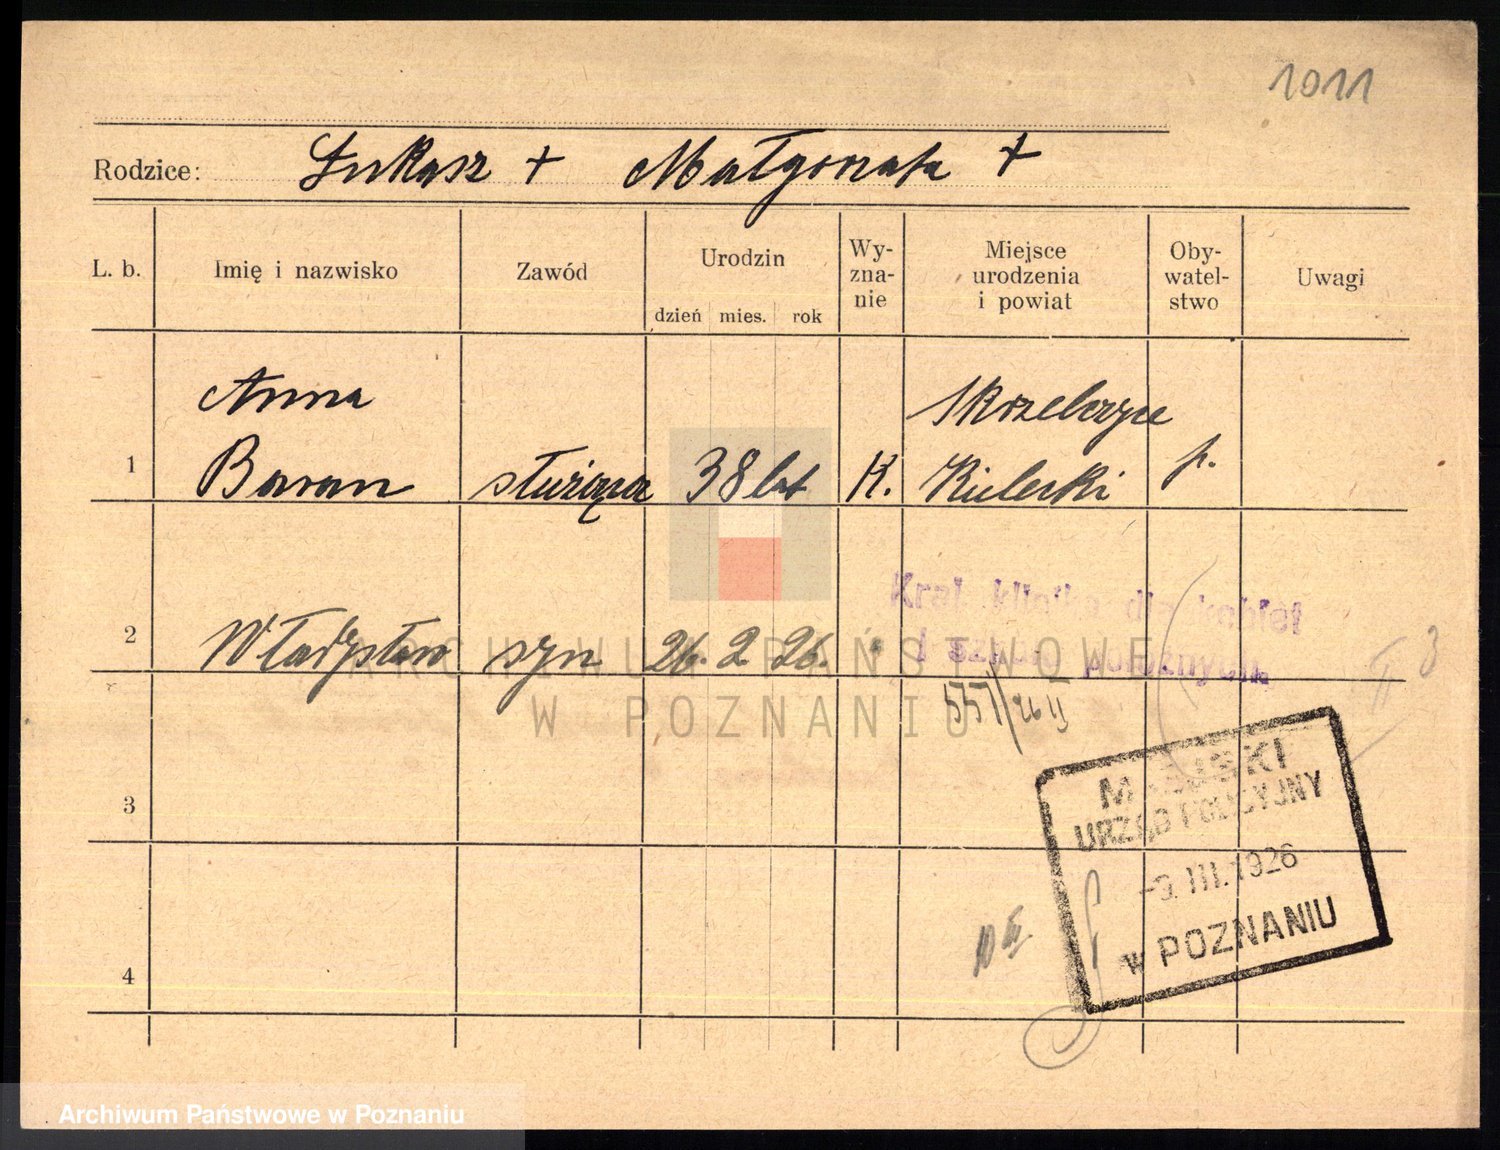 1011
Rodzice: Łukasz + Małgorzata +
L. b. Imię i nazwisko Zawód Urodzin dzień mies. rok Wy-zna-nie Miejsce urodzenia i powiat Oby-watel-stwo Uwagi
Anna Skrzelczyce
1 Baran służąca 38 lat K. Kielecki p.
Kraj. klinika dla kobiet
2 Władysław syn 26. 2 26.
i szkoła położnych
ARCHIWUM PAŃSTWOWE
W POZNANIU
3
MIEJSKI
URZĄD POLICYJNY
-3. III. 1926
w POZNANIU
10 III
4
Archiwum Państwowe w Poznaniu